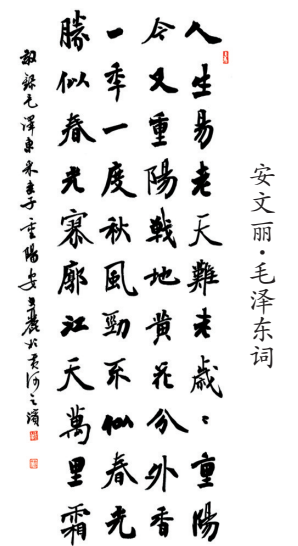 安文丽·毛泽东词
人生易老天難老歲々重陽
今又重陽戰地黄花分外香
一秊一度秋風勁不似春光
勝似春光寥廓江天萬里霜
敬録毛澤東采桑子重陽安文麗於黄河之濱